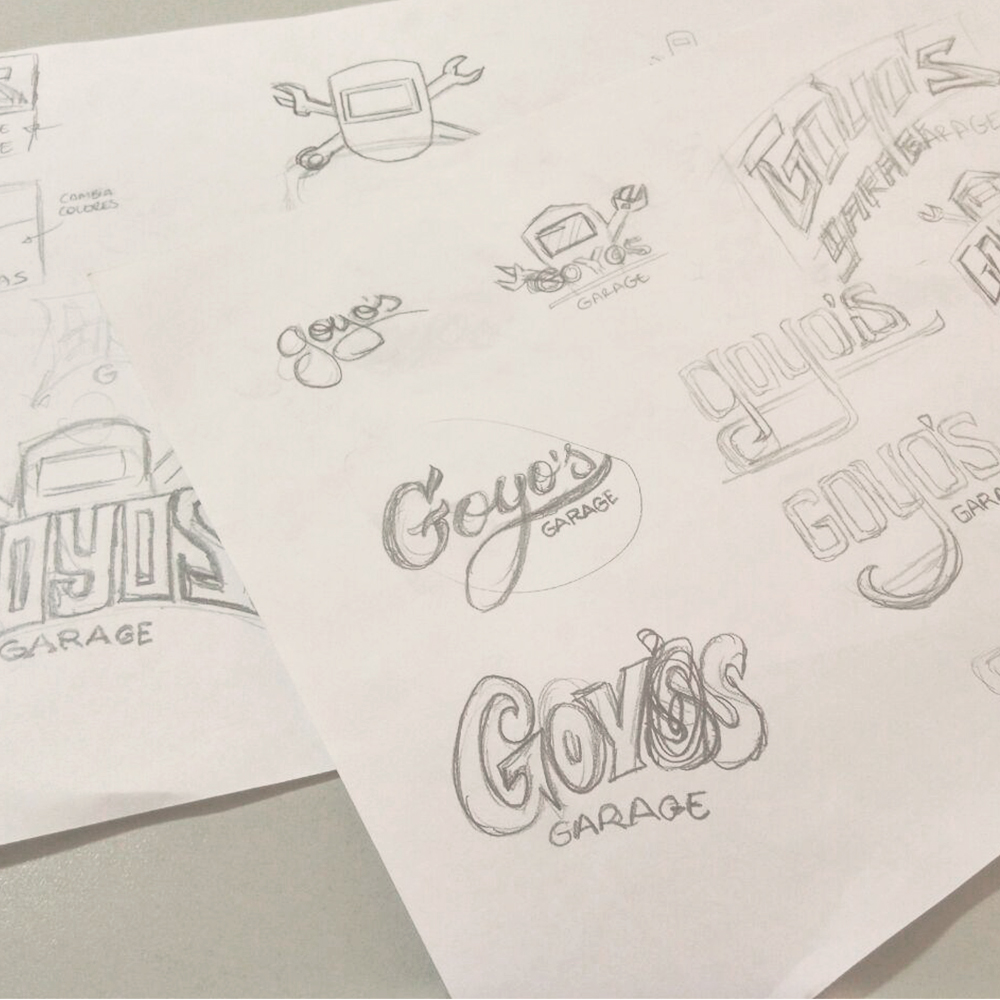 CAMBIA
COLORES
AS
G
OYOS
GARAGE
GOYOS
GARAGE
goyo's
Goyo's
GARAGE
GOY'S
GARAGE
Goyo's
GARAGE
GARAGE
goyo's
Goyo's
GAR